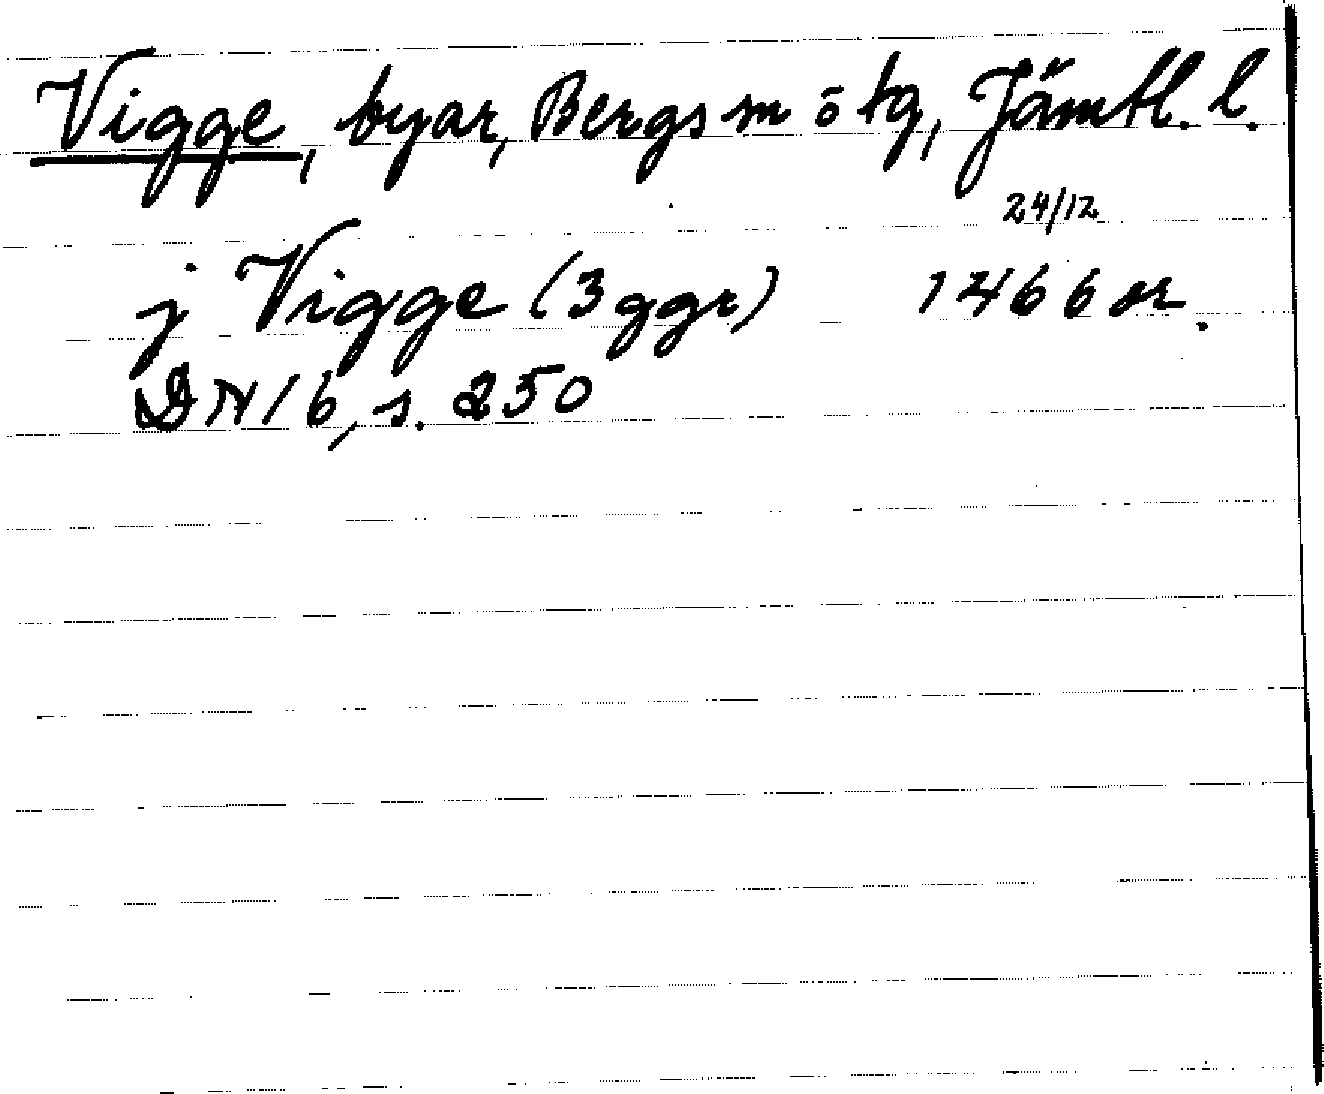 Vigge, byar, Bergs sn o tg, Jämtl. l.
24/12
j Vigge (3 ggr) 1466 or.
DN 16, s. 250